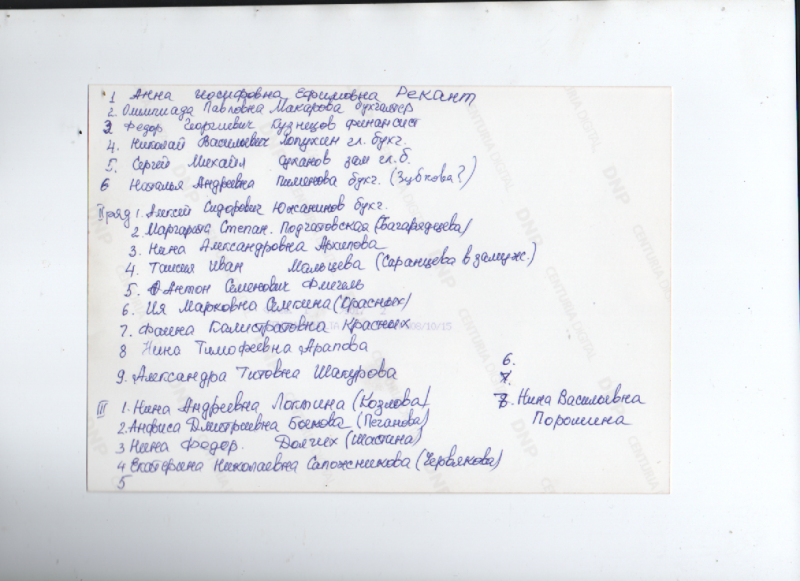 1 Анна Иосифовна Ефимовна Рекант
2. Олимпиада Павловна Макарова бухгалтер
3 Федор Георгиевич Кузнецов финансист
4. Николай Васильевич Лопухин гл. бухг.
5. Сергей Михайл Суханов зам гл. б.
6 Наталья Андреевна Пименова бухг. (Зубкова?)
II ряд 1. Алексей Сидорович Южанинов бухг.
2 Маргарита Степан. (Багарядцева)
3. Нина Александровна Архипова
4. Таисия Иван Мальцева (Саранцева в замуж.)
5. Антон Семенович Флигель
6. Ия Марковна Семкина (Красных)
7. Фаина Калистратовна Красных
8 Нина Тимофеевна Арапова
9. Александра Титовна Шакурова
III 1. Нина Андреевна Локтина (Козлова)
2. Анфиса Дмитриевна Боякова (Пеганова)
3 Нина Федор. Долгих (Шастина)
4 Екатерина Николаевна Сапожникова (Червякова)
5
6.
7.
8. Нина Васильевна
Порошина
CENTURIA DIGITAL
DNP